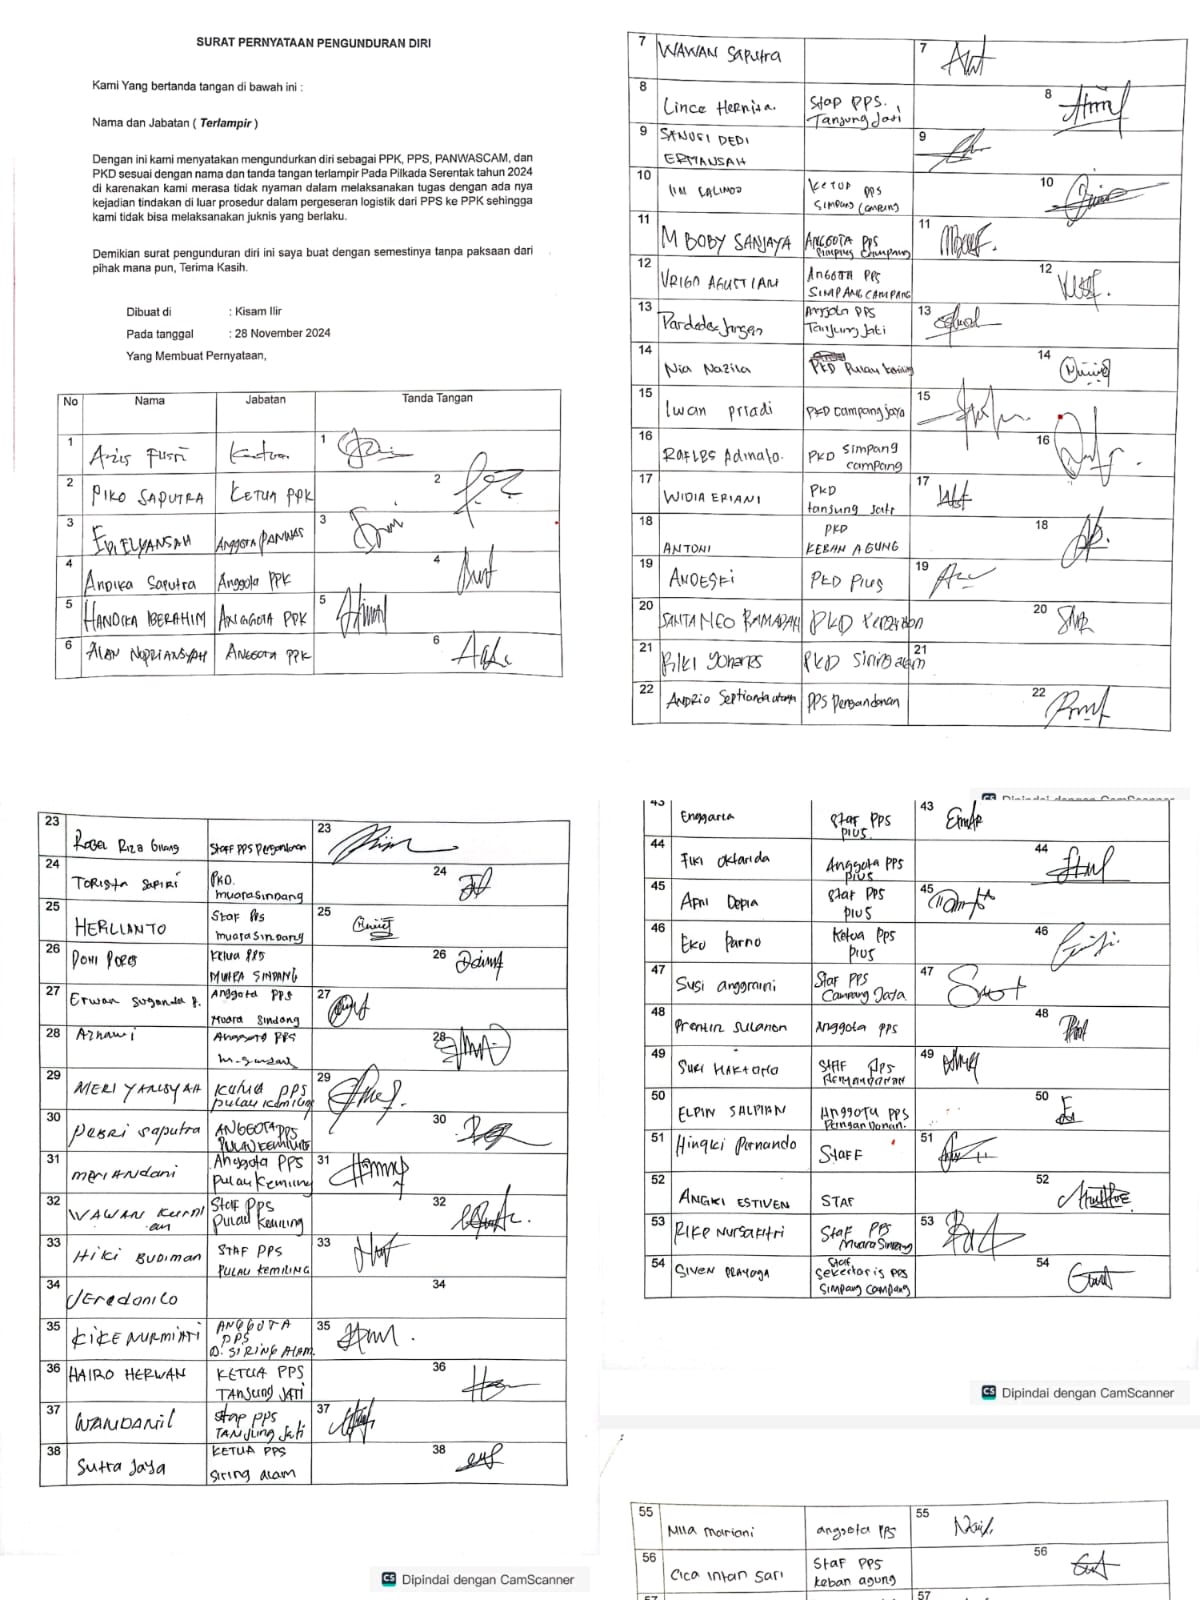 SURAT PERNYATAAN PENGUNDURAN DIRI
Kami Yang bertanda tangan di bawah ini :
Nama dan Jabatan ( Terlampir )
Dengan ini kami menyatakan mengundurkan diri sebagai PPK, PPS, PANWASCAM, dan
PKD sesuai dengan nama dan tanda tangan terlampir Pada Pilkada Serentak tahun 2024
di karenakan kami merasa tidak nyaman dalam melaksanakan tugas dengan ada nya
kejadian tindakan di luar prosedur dalam pergeseran logistik dari PPS ke PPK sehingga
kami tidak bisa melaksanakan juknis yang berlaku.
Demikian surat pengunduran diri ini saya buat dengan semestinya tanpa paksaan dari
pihak mana pun, Terima Kasih.
Dibuat di : Kisam Ilir
Pada tanggal : 28 November 2024
Yang Membuat Pernyataan,
No Nama Jabatan Tanda Tangan
1 1
2 PIKO SAPUTRA KETUA PPK 2
3 EDI ELYANSAH Anggota PANWAS 3
4 Andika Saputra Anggota PPK 4
5 HANDIKA IBERAHIM ANGGOTA PPK 5
6 ALAN NOPRIANSYAH ANGGOTA PPK 6
7 WAWAN Saputra 7
8 Lince Hernita. Stap PPS. Tanjung Jati 8
9 SANUSI DEDI ERMANSAH 9
10 Ketua PPS Simpang Campang 10
11 M BOBY SANJAYA ANGGOTA PPS Simpang Campang 11
12 VRIGO AGUSTIAN ANGGOTA PPS SIMPANG CAMPANG 12
13 Anggota PPS Tanjung Jati 13
14 Nia Nazila PKD Pulau 14
15 Iwan priadi PKD Campang jaya 15
16 ROFLES Adinato. PKD Simpang campang 16
17 WIDIA ERIANI PKD tanjung Jati 17
18 ANTONI PKD KEBAN AGUNG 18
19 ANDESKI PKD Pius 19
20 SANTA NEO RAMADAH PKD 20
21 RIKI Yohanes PKD Siring alam 21
22 ANDRIO Septianda PPS Pengandonan 22
23 Riza Gilang Staff PPS 23
24 TORISTA SAPIRI PKD. muara Sindang 24
25 HERLIANTO Staf PPS muara Sindang 25
26 Ketua PPS MUARA SINDANG 26
27 Erwan Suganda P. Anggota PPS Muara Sindang 27
28 Aznawi Anggota PPS 28
29 MERI YANSYAH Ketua PPS pulau kemiling 29
30 Pebri Saputra ANGGOTA PPS PULAU KEMILING 30
31 Meri Andani Anggota PPS Pulau Kemiling 31
32 WAWAN KURNI an Staf PPS Pulau Kemiling 32
33 Hiki BUDIMAN STAF PPS PULAU KEMILING 33
34 Veredonico 34
35 KIKE NURMIATI ANGGOTA PPS D. SIRING ALAM. 35
36 HAIRO HERWAN KETUA PPS TANJUNG JATI 36
37 WANDANIL Stap PPS TANJUNG Jati 37
38 Sutra Jaya KETUA PPS Siring alam 38
Dipindai dengan CamScanner
43 Enggaria Staf PPS pius 43
44 Fiki Oktarida Anggota PPS pius 44
45 Apni Depia Staf PPS pius 45
46 Eko Parno Ketua PPS pius 46
47 Susi anggraini Staf PPS Campang Jaya 47
48 Anggota PPS 48
49 STAF PPS 49
50 ELPIN SALPIAN Anggota PPS Pengandonan. 50
51 Hingki Pernando STAFF 51
52 ANGKI ESTIVEN STAF 52
53 RIKE NURSAFITRI Staf PPS Muara Sindang 53
54 SIVEN PRAYOGA Staf Sekertaris PPS Simpang Campang 54
Dipindai dengan CamScanner
55 Mila Mariani anggota PPS 55
56 Cica intan sari Staf PPS keban agung 56
57 57